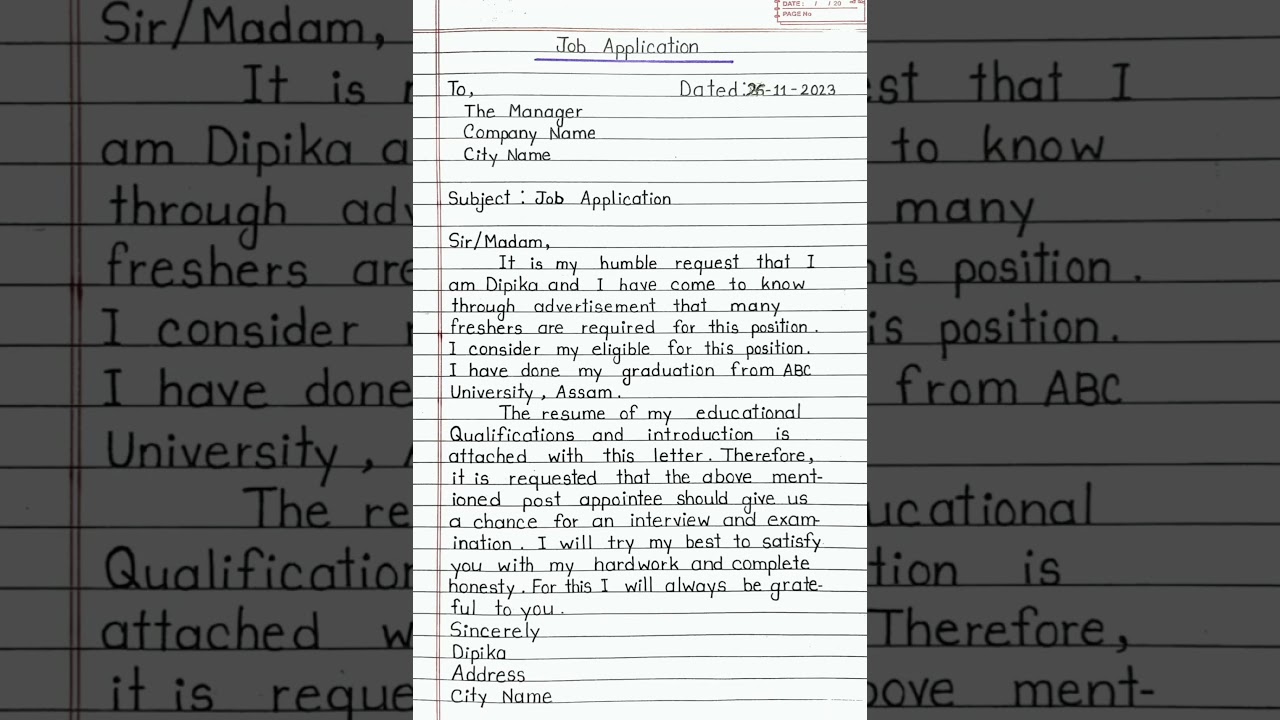 DATE: / / 20
PAGE No
Job Application
To,
Dated:26-11-2023
The Manager
Company Name
City Name
Subject : Job Application
Sir/Madam,
It is my humble request that I
am Dipika and I have come to know
through advertisement that many
freshers are required for this position.
I consider my eligible for this position.
I have done my graduation from ABC
University, Assam.
The resume of my educational
Qualifications and introduction is
attached with this letter. Therefore,
it is requested that the above ment-
ioned post appointee should give us
a chance for an interview and exam-
ination. I will try my best to satisfy
you with my hardwork and complete
honesty. For this I will always be grate-
ful to you.
Sincerely
Dipika
Address
City Name